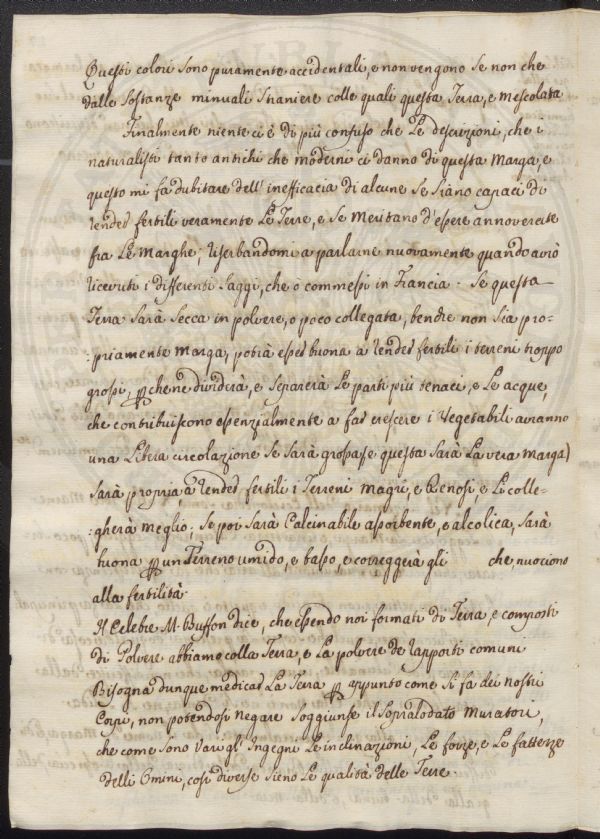 Questi colori sono puramente accidentali, e non vengono se non che
dalle Sostanze minerali Straniere colle quali questa Terra, e mescolata
Finalmente niente ci è di più confuso che Le descrizioni, che i
naturalisti tanto antichi che moderni ci danno di questa Marga, e
questo mi fa dubitare dell' inefficacia di alcune se siano capaci di
render fertili veramente Le Terre, e se meritano d'essere annoverate
fra Le Marghe; riserbandomi a parlarne nuovamente quando avrò
ricevuti i differenti Saggi, che ò commessi in Francia. Se questa
Terra Sarà Secca in polvere, o poco collegata, benche non sia pro-
:priamente Marga, potrà esser buona à render fertili i terreni troppo
grossi, perche ne dividerà, e Separerà Le parti più tenaci, e Le acque,
che contribuiscono essenzialmente a far crescere i Vegetabili avranno
una Libera circolazione Se Sarà grossa (e questa Sarà La vera Marga)
Sarà propria à render fertili i Terreni magri, e Renosi, e Li colle-
:gherà meglio; Se poi Sarà Calcinabile assorbente, e alcolica, Sarà
buona per un Terreno umido, e basso, e correggerà gli che nuociono
alla fertilità.
Il Celebre M. Buffon dice, che essendo noi formati di Terra, e composti
di Polvere abbiamo colla Terra, e La polvere de rapporti comuni
Bisogna dunque medicar La Terra per appunto come si fa dei nostri
Corpi, non potendosi negare Soggiunse il Sopralodato Muratori,
che come sono varj gl' Ingegni Le inclinazioni, Le forze, e Le fattezze
delli Omini, così diverse sieno Le qualità delle Terre.